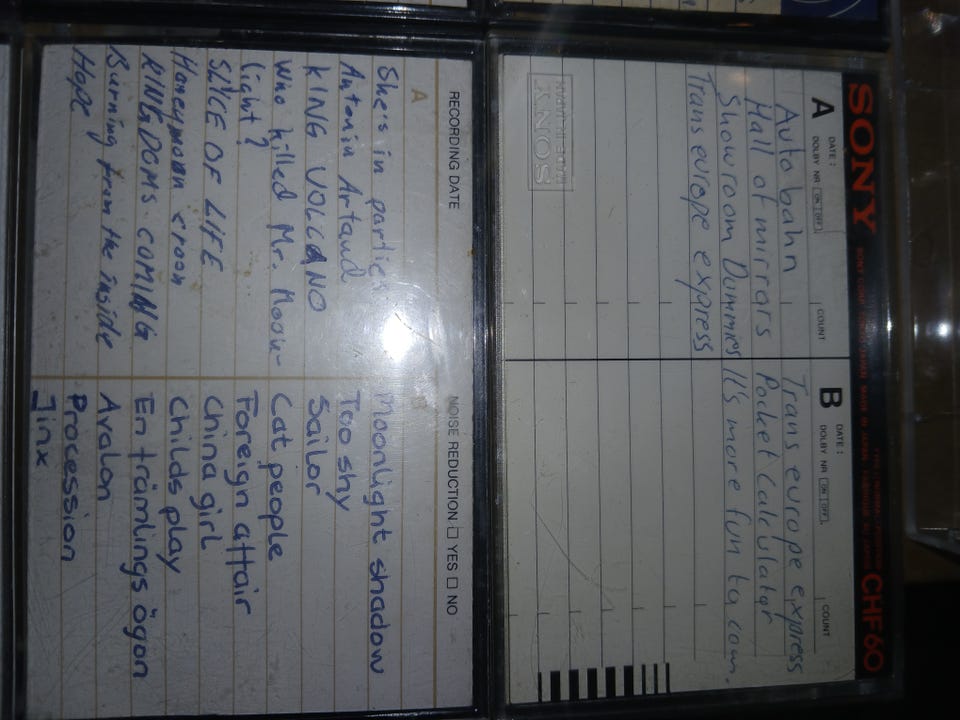 SONY
CHF60
A
DATE:
DOLBY NR ON OFF
COUNT
Autobahn
Hall of mirrors
Showroom Dummies
Trans europe express
B
DATE:
DOLBY NR ON OFF
COUNT
Trans europe express
Pocket Calculator
It's more fun to com.
SONY
RECORDING DATE
NOISE REDUCTION YES NO
A
She's in parties
Antonin Artaud
KING VOLCANO
Who killed Mr. Moon-
light?
SLICE OF LIFE
Honeymoon croon
KINGDOMS COMING
Burning from the inside
Hope
B
Moonlight shadow
Too shy
Sailor
Cat people
Foreign affair
China girl
Childs play
En främlings ögon
Avalon
Procession
Jinx